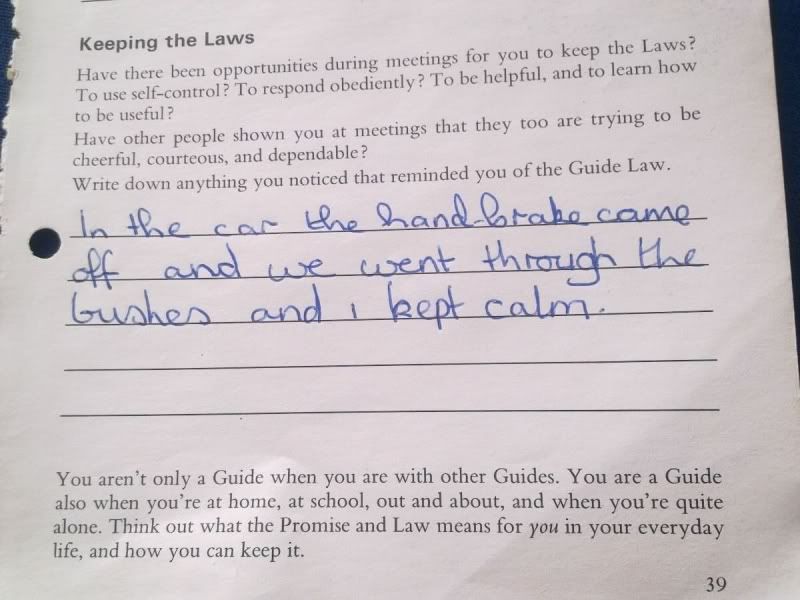 Keeping the Laws
Have there been opportunities during meetings for you to keep the Laws?
To use self-control? To respond obediently? To be helpful, and to learn how
to be useful?
Have other people shown you at meetings that they too are trying to be
cheerful, courteous, and dependable?
Write down anything you noticed that reminded you of the Guide Law.
In the car the hand-brake came
off and we went through the
bushes and i kept calm.
You aren't only a Guide when you are with other Guides. You are a Guide
also when you're at home, at school, out and about, and when you're quite
alone. Think out what the Promise and Law means for you in your everyday
life, and how you can keep it.
39